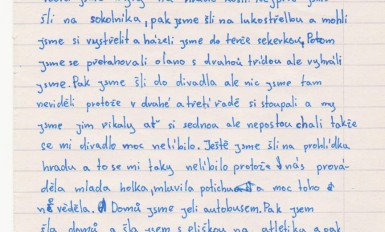 šli na sokolníka, pak jsme šli na lukostřelbu a mohli
jsme si vystřelit a házeli jsme do terče sekerkou. Potom
jsme se přetahovali o lano s druhou třídou ale vyhráli
jsme. Pak jsme šli do divadla ale nic jsme tam
neviděli protože v druhé a třetí řadě si stoupali a my
jsme jim říkaly ať si sednou ale neposlouchali takže
se mi divadlo moc nelíbilo. Ještě jsme šli na prohlídku
hradu a to se mi taky nelíbilo protože nás prová-
děla mladá holka, mluvila potichu a moc toho
nevěděla. Domů jsme jeli autobusem. Pak jsem
šla domů a šla jsem s eliškou na atletiku a pak